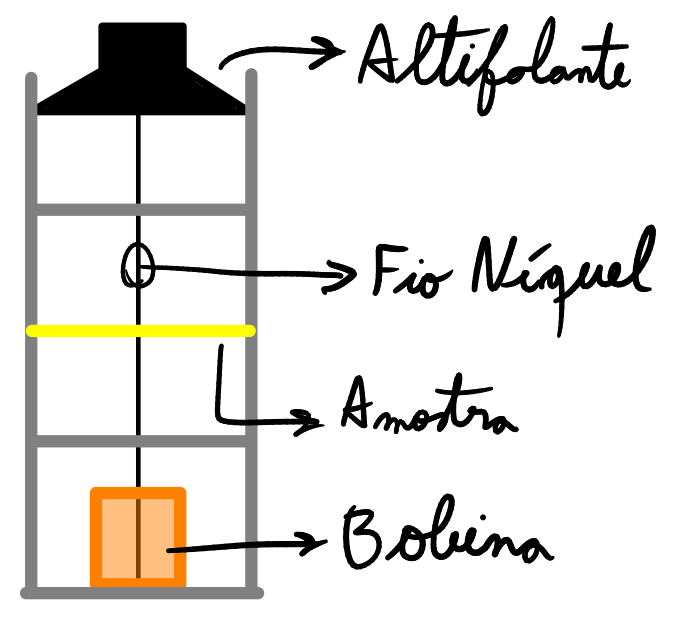 Altifalante
Fio Níquel
Amostra
Bobina